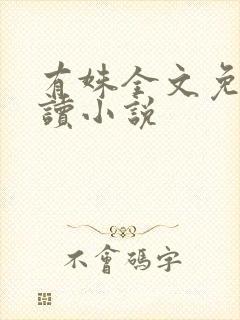 有妹全文免
讀小說
不會碼字